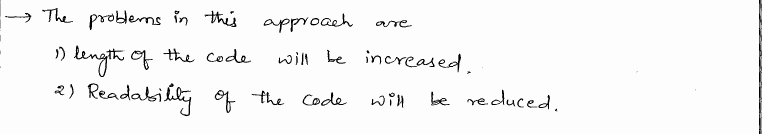 → The problems in this approach are
1) length of the code will be increased.
2) Readability of the code will be reduced.